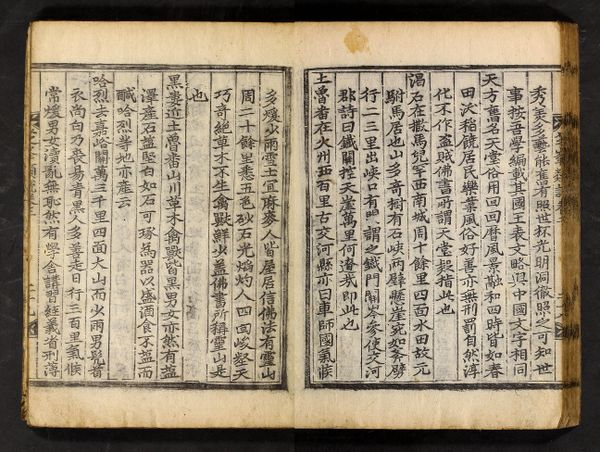 秀美多藝能舊有照世杯光明洞徹照之可知世
事按吾學編載其國王表文略與中國文字相同
天方舊名天堂俗用回回曆風景融和四時皆如春
田沃稻饒居民樂業風俗好善亦無刑罰自然淳
化不作盜賊佛書所謂天堂殺指此也
渴石在撒馬兒罕西南城周十餘里四面水田故元
駙馬居也山多奇樹有石峽兩壁懸崖宛如斧劈
行二三里出峽口有門謂之鐵門關岑參使交河
郡詩曰鐵關控天崖萬里何遼哉即此也
土魯番在火州西百里古交河縣亦曰車師國氣候
多煖少雨雪土宜麻麥人皆屋居信佛法有靈山
周二十餘里悉五色砂石光焰灼人四面峻壑天
巧奇絕草木不生禽獸鮮少蓋佛書所稱靈山是
也
黑婁近土魯番山川草木禽獸皆黑男女亦然有鹽
澤產石鹽堅白如石可琢為器以盛酒食不鹽而
鹹哈烈等地亦產云
哈烈去嘉峪關萬三千里四面大山而少雨男髡首
衣尚白乃喪易青黑人多善走日行三百里氣候
常煖男女瀆亂無恥然有學舍講習經義省刑薄